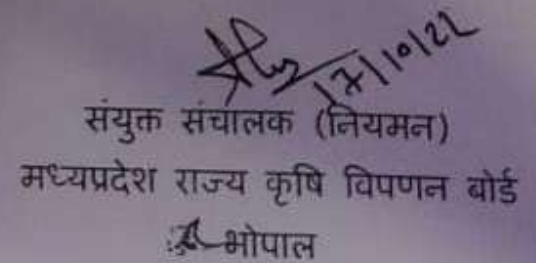 17/10/22
संयुक्त संचालक (नियमन)
मध्यप्रदेश राज्य कृषि विपणन बोर्ड
भोपाल